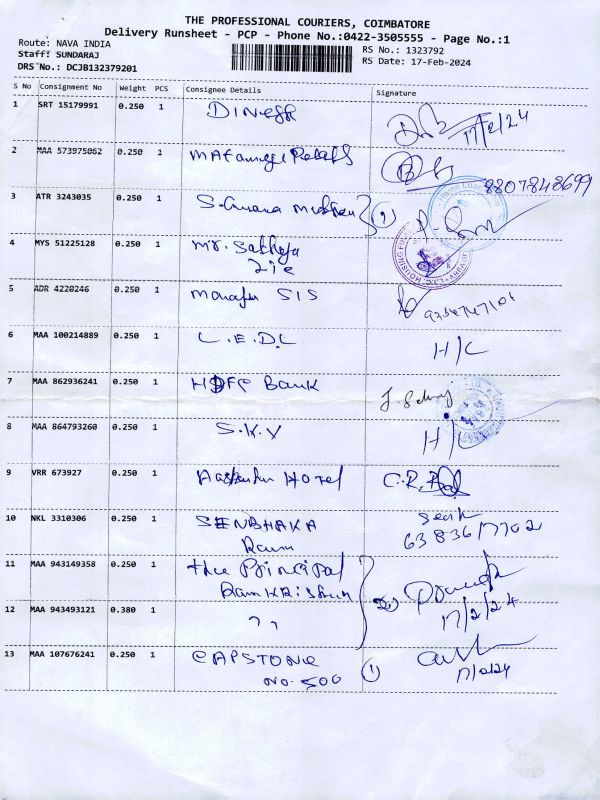 THE PROFESSIONAL COURIERS, COIMBATORE
Delivery Runsheet - PCP - Phone No.:0422-3505555 - Page No.:1
Route: NAVA INDIA
Staff: SUNDARAJ
DRS No.: DCJB132379201
RS No.: 1323792
RS Date: 17-Feb-2024
S No Consignment No Weight PCS Consignee Details Signature
1 SRT 15179991 0.250 1 DINESH 17/2/24
2 MAA 573975062 0.250 1 8807848699
3 ATR 3243035 0.250 1 (1)
4 MYS 51225128 0.250 1 Mr.
5 ADR 4220246 0.250 1 Manager SIS
6 MAA 100214889 0.250 1 L.E.D.L H/C
7 MAA 862936241 0.250 1 HDFC Bank
8 MAA 864793260 0.250 1 S.K.V H/C
9 VRR 673927 0.250 1 Hotel C.R.
10 NKL 3310306 0.250 1 SENBHAKA
Ram 6383617702
11 MAA 943149358 0.250 1 the Principal
17/2/24
12 MAA 943493121 0.380 1 ,,
13 MAA 107676241 0.250 1 CAPSTONE
NO-500 (1) 17/2/24